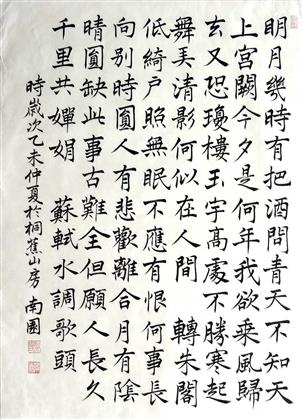 明月幾時有把酒問青天不知天
上宮闕今夕是何年我欲乘風歸
去又恐瓊樓玉宇高處不勝寒起
舞弄清影何似在人間 轉朱閣
低綺戶照無眠不應有恨何事長
向別時圓人有悲歡離合月有陰
晴圓缺此事古難全但願人長久
千里共嬋娟 蘇軾水調歌頭
時歲次乙未仲夏於桐蕉山房 南園